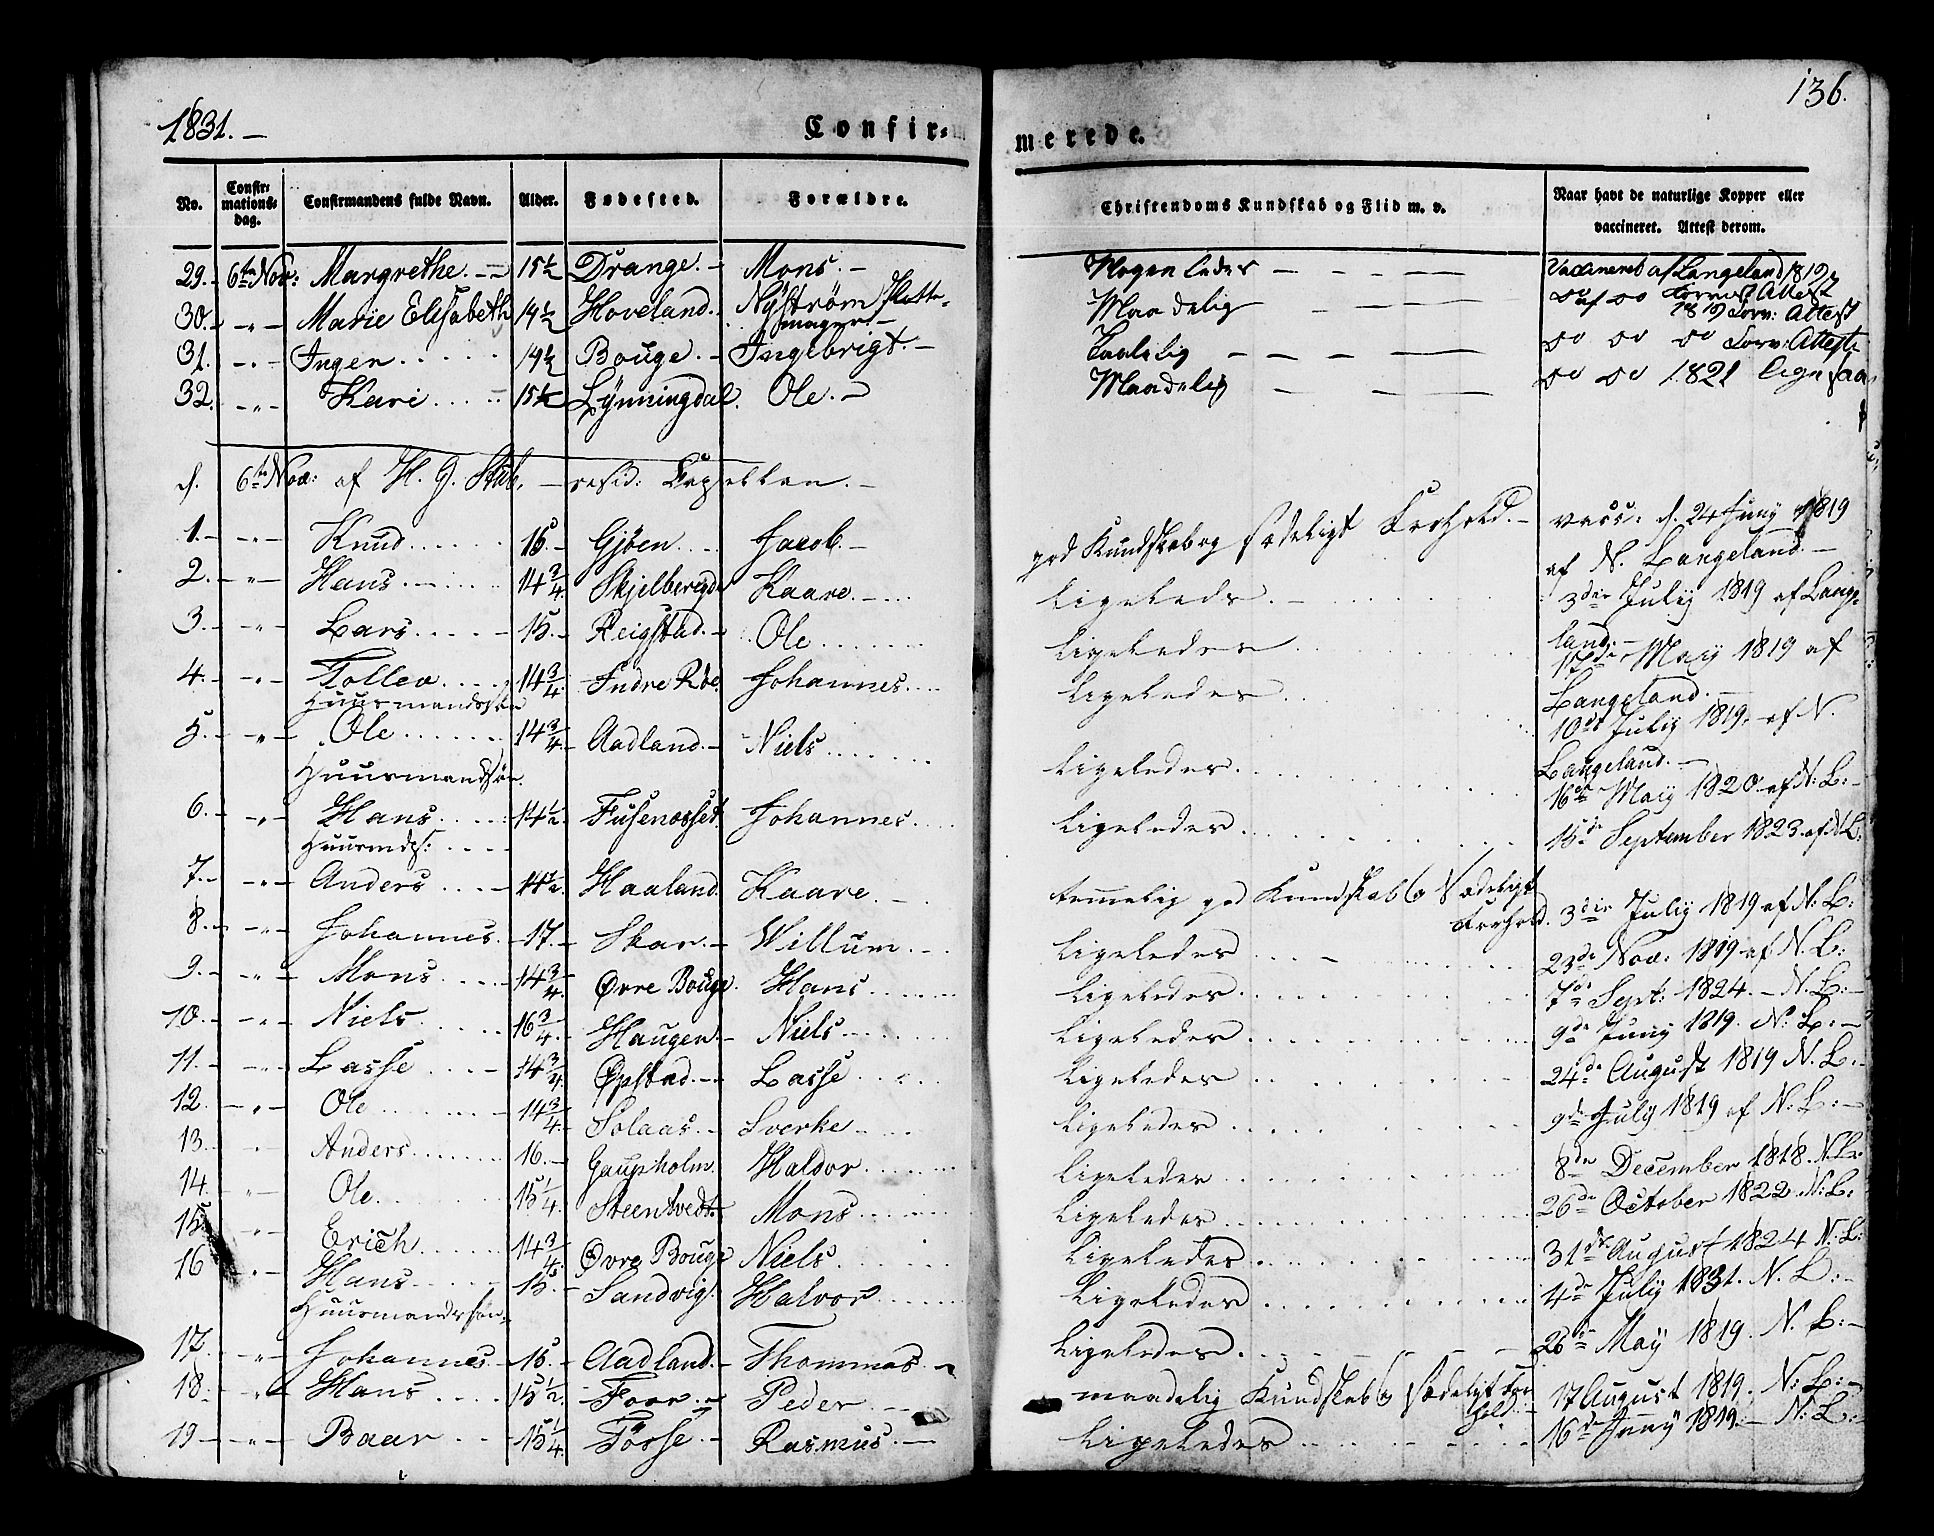 1831. —
136.
Confir=
merede.
No. Confir= mations= dag. Confirmandens fulde Navn. Alder. Fødested. Forældre. Christendoms Kundskab og Flid m. v. Naar havt de naturlige Kopper eller vaccineret. Attest derom.
29. 6te Nov: Margrethe. 15½ Drange. Mons. Nogenledes Vaccineret af Langeland 1819
30. Marie Elisabeth 14½ Hoveland. Nÿstrøm Hattemager. Maadelig do af do 1819 Attest
31. Ingen 14½ Bouge. Ingebrigt. Taalelig do do do Attest
32. Kari 15½ Lÿnningdal. Ole. Maadelig do do 1821
d. 6te Nov: af H. G. Stub, resid: Capellan.
1. Knud 16. Gjøen Jacob. god Kundskab og sædeligt Forhold. vacc: d. 24 Junÿ 1819
af N. Langeland.
2. Hans 14¾ Skjelbergd Kaare Ligeleds. 3die Julÿ 1819 af Lange=
land.
3. Lars 15. Reigstad. Ole Ligeledes 17de Maÿ 1819 af
Langeland.
4. Tollev 14¾ Indre Røe Johannes Ligeledes 10de Julÿ 1819. af N.
Huusmandssøn
Langeland.
5. Ole 14¾ Aadland. Niels Ligeledes. 16de Maÿ 1820 af N: L:
Huusmandssøn
6. Hans 14½. Fusenæsset. Johannes Ligeledes 15de September 1823. af N. L:
Huusmds:
7. Anders 14½. Haaland. Kaare temmelig god Kundskab og Sædeligt
Forhold. 3die Julÿ 1819 af N: L:
8. Johannes. 17. Skar. Willum Ligeledes 23de Nov: 1819 af N. L:
9. Mons 14¾. Øvre Bouge. Hans Ligeledes 7de Sept: 1824. N. L:
10. Niels 16¾. Haugen. Niels Ligeledes 9de Junÿ 1819. N: L:
11. Lasse 14¾ Øpstad. Lasse Ligeledes 24de August 1819 N. L:
12. Ole 14¾. Solaas. Sverke Ligeledes 9de Julÿ 1819 af N: L:
13. Anders 16. Gaupholm. Haldor Ligeledes 8de December 1818. N. L:
14. Ole 15¼. Steentvedt. Mons Ligeledes 26de October 1822. N: L:
15. Erich 14¾ Øvre Bouge Niels Ligeledes 31de August 1824 N. L:
16 Hans 15. Sandvig. Halvor Ligeledes 4de Julÿ 1831. N. L:
Huusmandssøn.
17. Johannes 15. Aadland. Thommas Ligeledes. 26de Maÿ 1819. N. L:
18. Hans 15½. Foor. Peder maadelig Kundskab og Sædeligt For
hold. 17 August 1819. N: L:
19 Baar 15¼. Tøsse. Rasmus. Ligeledes 16de Junÿ 1819. N: L: